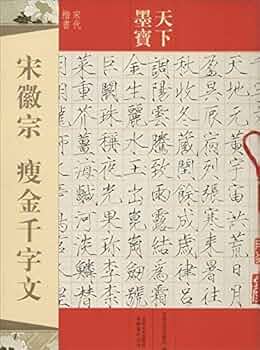 天下
墨寶
宋代
楷書
宋徽宗 瘦金千字文
天地玄黃宇宙洪荒日月
盈昃辰宿列張寒來暑往
秋收冬藏閏餘成歲律呂
調陽雲騰致雨露結為霜
金生麗水玉出崑岡劍號
巨闕珠稱夜光果珍李柰
菜重芥薑海鹹河淡鱗潛